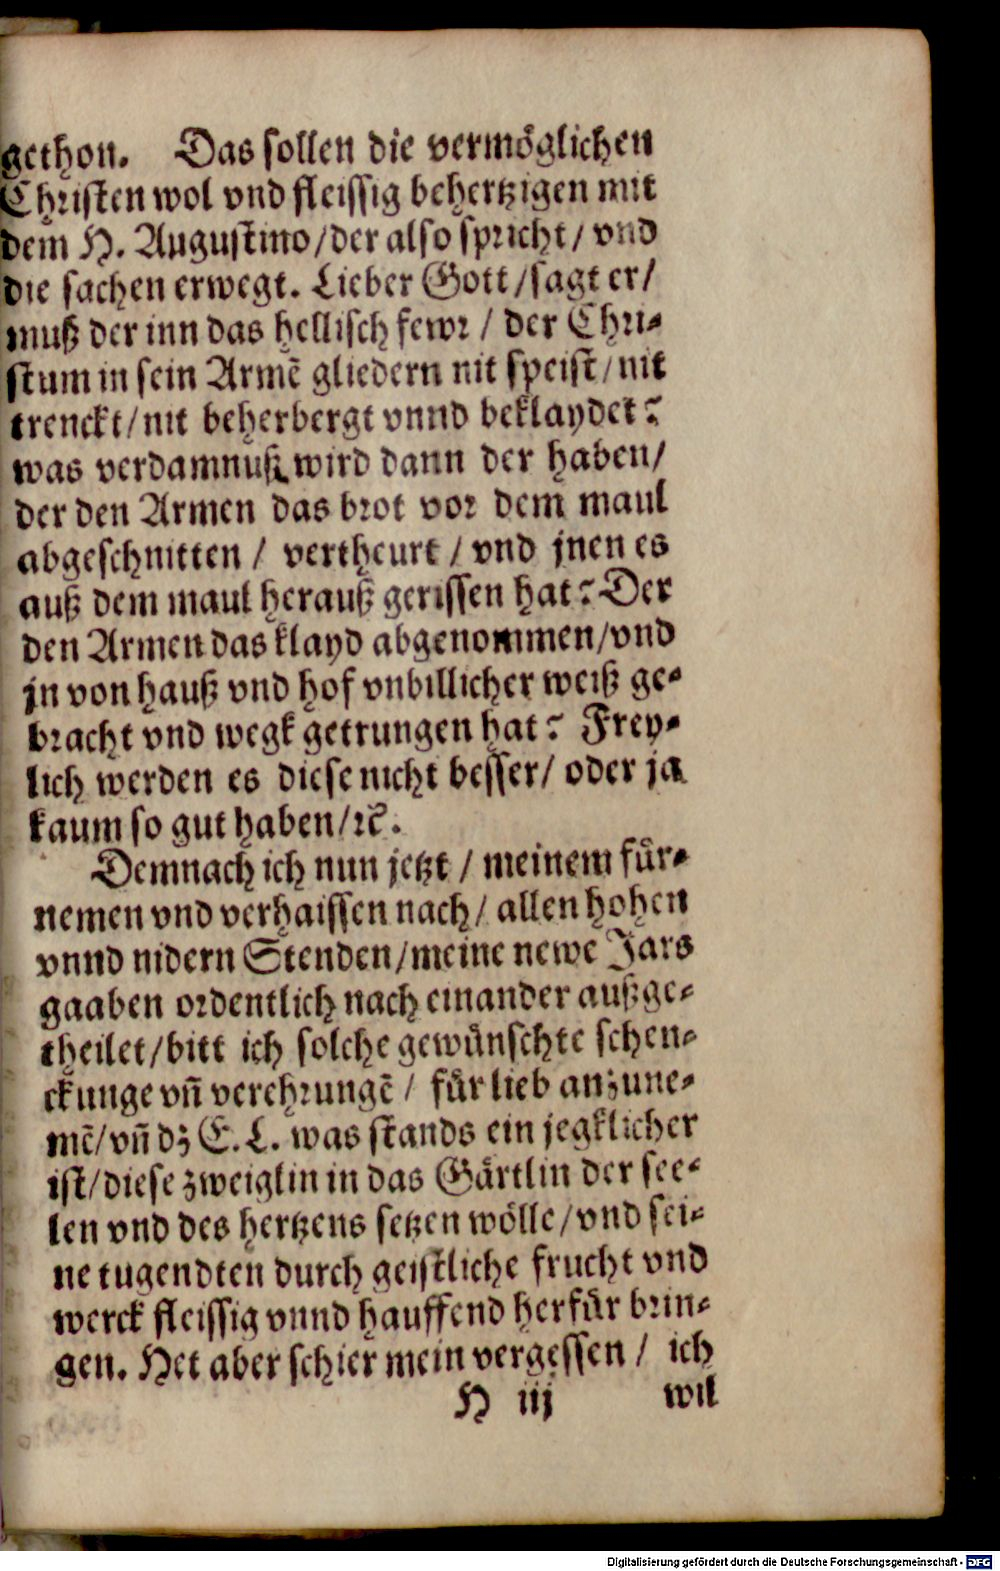 gethon. Das sollen die vermöglichen
Christen wol vnd fleissig behertzigen mit
dem H. Augustino/der also spricht/ vnd
die sachen erwegt. Lieber Gott/sagt er/
muß der inn das hellisch fewr / der Chri-
stum in sein Armē gliedern nit speist/nit
trenckt/nit beherbergt vnnd beklaydet?
was verdamnuß wird dann der haben/
der den Armen das brot vor dem maul
abgeschnitten / vertheurt / vnd jnen es
auß dem maul herauß gerissen hat? Der
den Armen das klayd abgenommen/vnd
jn von hauß vnd hof vnbillicher weiß ge-
bracht vnd wegk getrungen hat? Frey-
lich werden es diese nicht besser/ oder ja
kaum so gut haben/ꝛc̄.
Demnach ich nun jetzt / meinem fuͤr-
nemen vnd verhaissen nach/ allen hohen
vnnd nidern Stenden/meine newe Jars
gaaben ordentlich nach einander außge-
theilet/bitt ich solche gewuͤnschte schen-
ckunge vn̄ verehrungē / fuͤr lieb anzune-
mē/vn̄ dz E. L. was stands ein jegklicher
ist/diese zweiglin in das Gaͤrtlin der see-
len vnd des hertzens setzen woͤlle/vnd sei-
ne tugendten durch geistliche frucht vnd
werck fleissig vnnd hauffend herfuͤr brin-
gen. Het aber schier mein vergessen / ich
H iij wil
Digitalisierung gefördert durch die Deutsche Forschungsgemeinschaft - DFG